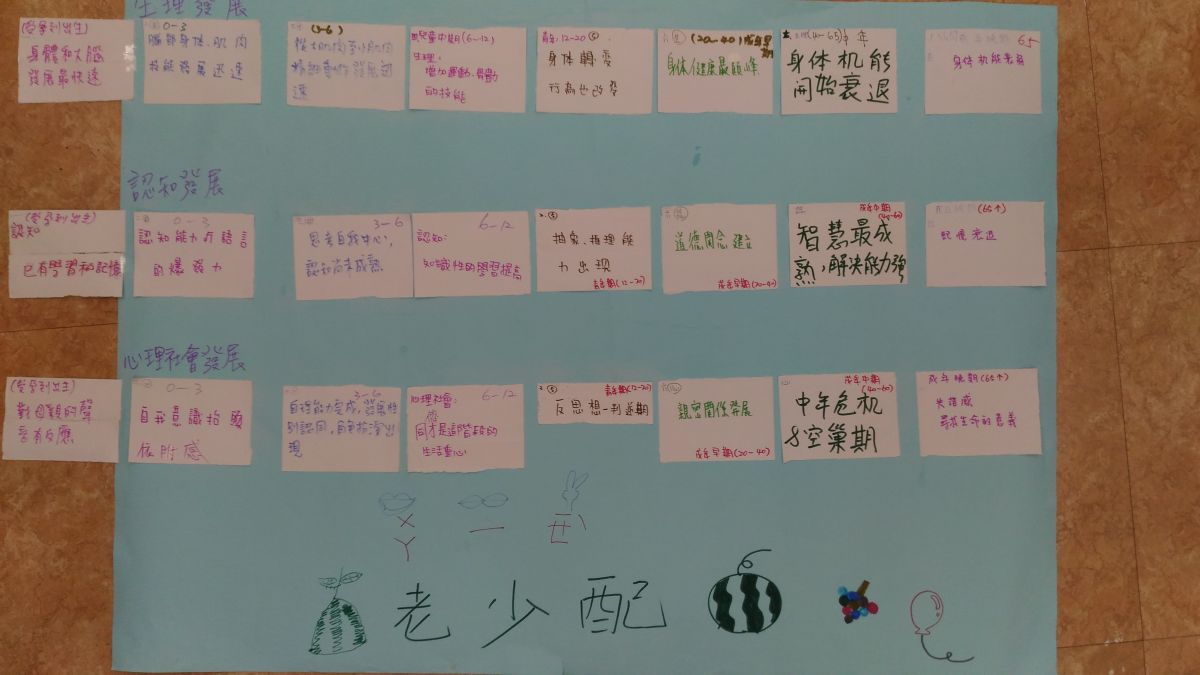 生理發展
(受孕到出生)
身體和大腦
發展最快速
0-3
腦部身体、肌肉
技能發展迅速
(3-6)
粗大肌肉至小肌肉
精細動作發展迅
速
兒童中期(6-12)
生理:
增加運動、骨骼
的技能
青年:12-20
身体轉變
行為也改變
(20-40)成年早期
身体/健康最顛峰
(40-65)中年
身体机能
開始衰退
65
身体机能衰弱
認知發展
(受孕到出生)
認知
已有學習和記憶
0-3
認知能力或語言
的爆發力
3-6
思考自我中心,
認知尚未成熟
6-12
認知:
知識性的學習提高
抽象、推理能
力出現
青年期(12-20)
道德閞念建立
成年早期(20-40)
成年中期
(40-60)
智慧最成
熟,解決能力強
(65↑)
記憶衰退
心理社會發展
(受孕到出生)
對母親的聲
音有反應
0-3
自我意識抬頭
依附感
3-6
自理能力完成,發展性
別認同,自尊
現
6-12
心理社會:
同才是這階段的
生活重心
青年期(12-20)
反思想-判逆期
親密關係發展
成年早期(20-40)
成年中期
(40-60)
中年危机
&空巢期
成年晚期(65↑)
失落感
尋求生命的意義
ㄨ ㄧ ㄞˋ
ㄚ
老少配